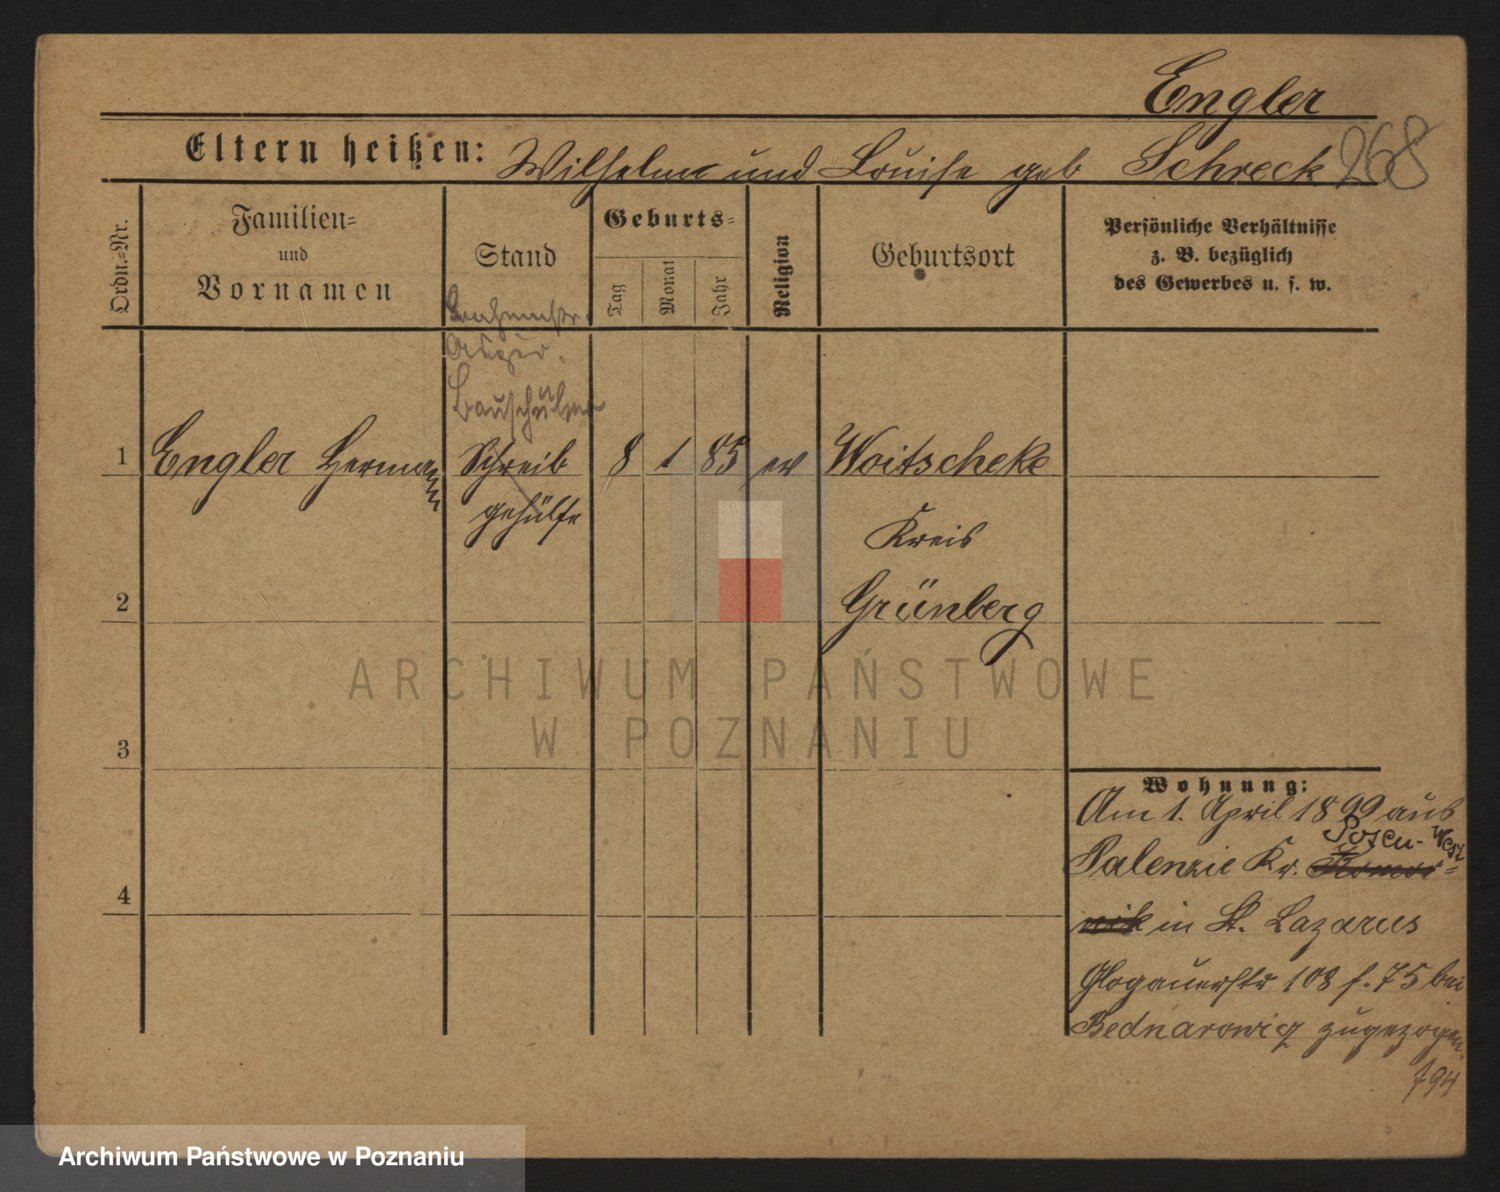 Engler
Eltern heißen: Wilhelm und Louise geb Schreck 268
Ordn.-Nr.
Familien-
und
Vornamen
Stand
Geburts-
Tag
Monat
Jahr
Religion
Geburtsort
Persönliche Verhältnisse
z. B. bezüglich
des Gewerbes u. s. w.
Bauschüler
1 Engler Hermann Schreib 8 1 85 ev Woitscheke
gehülfe Kreis
2 Grünberg
ARCHIWUM PAŃSTWOWE
W POZNANIU
3
4
Wohnung:
Am 1. April 1899 aus
Posen-West
Palenzie Kr.
in St. Lazarus
Glogauerstr 108 f. 75 bei
Bednarowicz zugezogen.
794
Archiwum Państwowe w Poznaniu